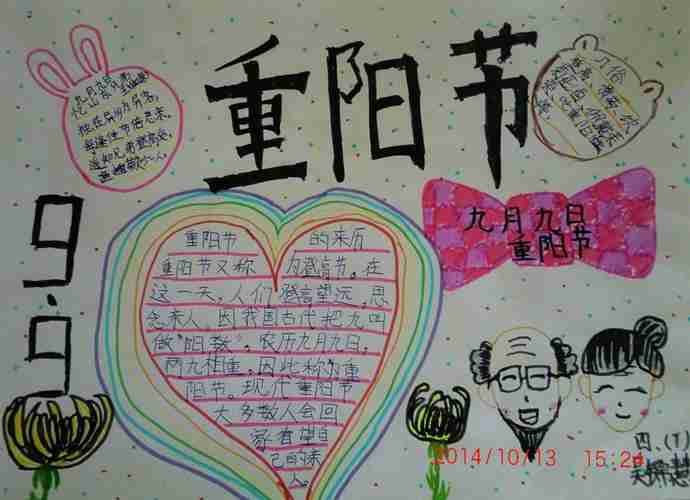 重阳节
忆山东兄弟
独在异乡为异客,
每逢佳节倍思亲。
遥知兄弟登高处,
遍插茱萸少一人。
习俗
9.9
九月九日
重阳节
重阳节 的来历
重阳节又称 为登高节。在
这一天,人们 登高望远,思
念亲人。因我国古代把九叫
做"阳数"。农历九月九日,
两九相重,因此称为重
阳节。现代重阳节
大多数人会回
家看望自
己的亲
人。
四、(1)
2014/10/13 15:24